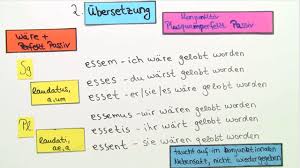 2. Übersetzung
Konjunktiv
Plusquamperfekt Passiv
wäre +
Perfekt Passiv
Sg
laudatus,
a, um
essem - ich wäre gelobt worden
esses - du wärst gelobt worden
esset - er|sie|es wäre gelobt worden
Pl
laudati,
ae, a
essemus - wir wären gelobt worden
essetis - ihr wärt gelobt worden
essent - sie wären gelobt worden
taucht auf im konjunktionalen
Nebensatz, nicht wiedergegeben